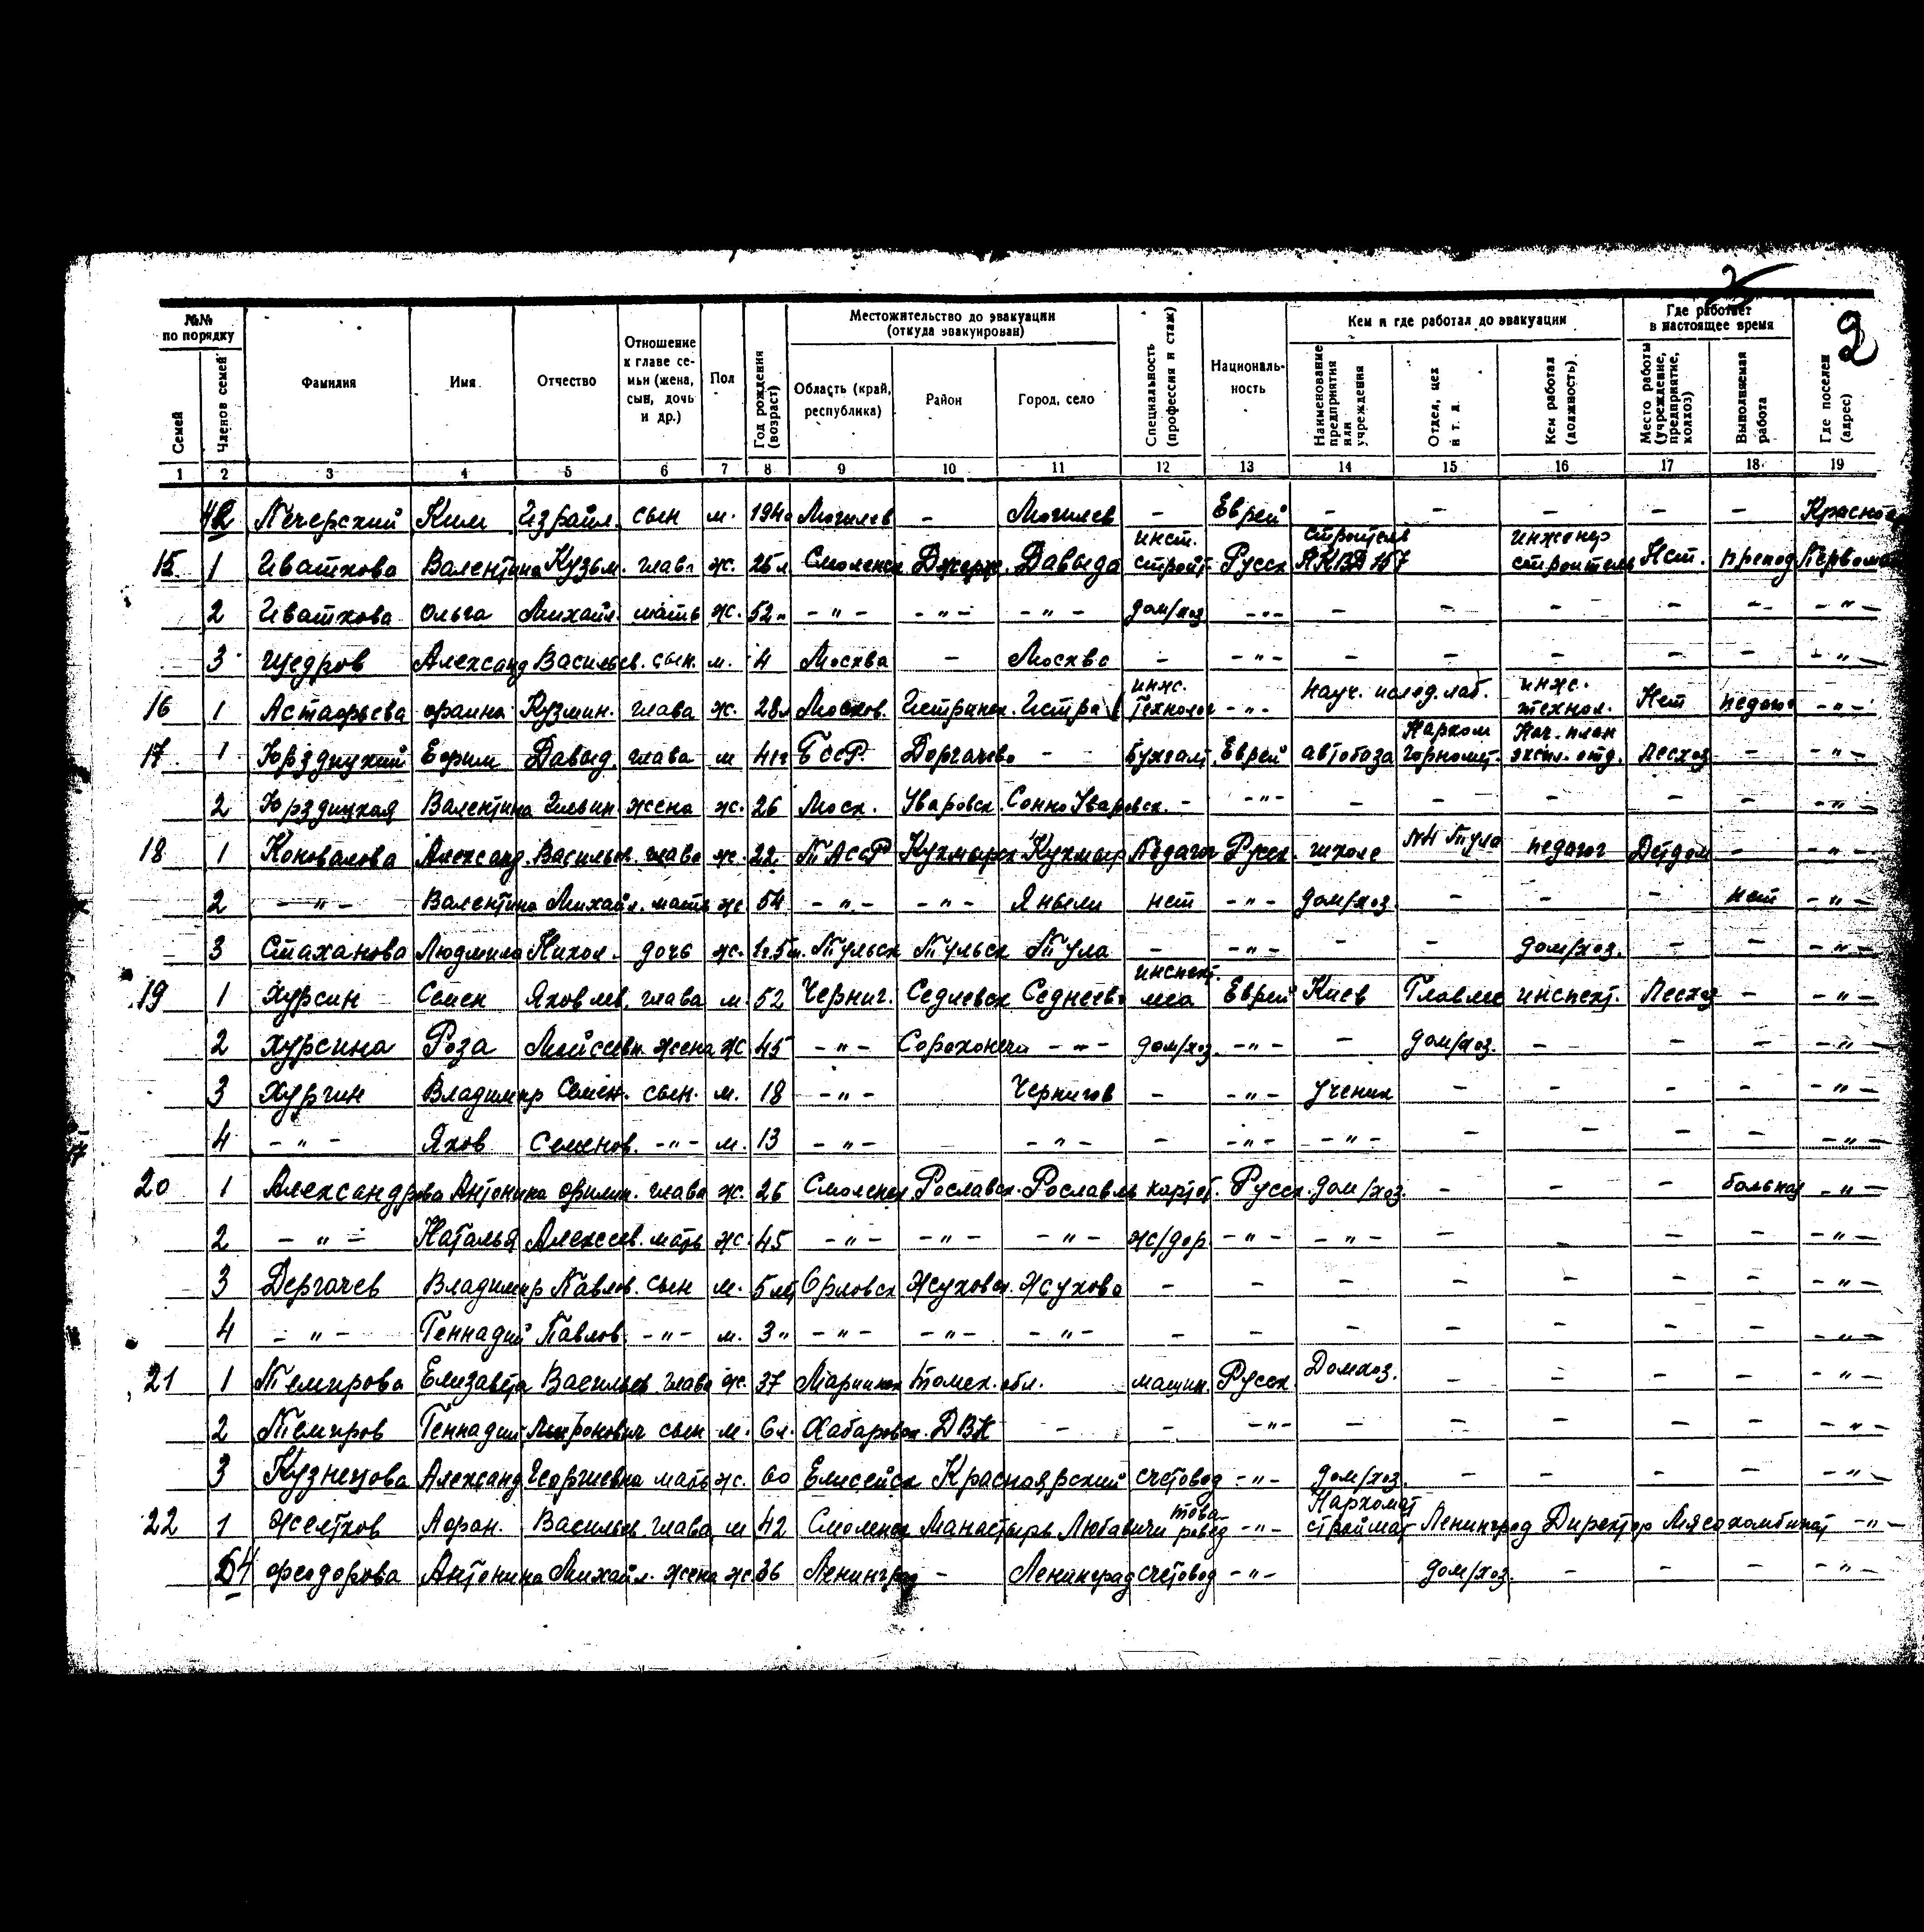 2
№№ по порядку Фамилия Имя Отчество Отношение к главе семьи (жена, сын, дочь и др.) Пол Год рождения (возраст) Местожительство до эвакуации (откуда эвакуирован) Специальность (профессия и стаж) Националь-ность Кем и где работал до эвакуации Где работает в настоящее время Где поселен (адрес)
Семей Членов семей Область (край, республика) Район Город, село Наименование предприятия или учреждения Отдел, цех и т. д. Кем работал (должность) Место работы (учреждение, предприятие, колхоз) Выполняемая работа
1 2 3 4 5 6 7 8 9 10 11 12 13 14 15 16 17 18 19
Печерский Ким Израйл. сын м. 1940 Могилев - Могилев - Еврей - - - - - Красноар
15 1 Ивашкова Валентина Кузьм. глава ж. 25 л Смоленск Давыда инст. строит. Русск строитель НКВД 157 инженер строитель Нет. препод Первомай
2 Ивашкова Ольга Михайл. мать ж. 52 " - " - - " - - " - дом/хоз. - " - - - - - - - " -
3 Щедров Александ Васильев. сын. м. 4 Москва - Москва - - " - - - - - - - " -
16 1 Астафьева фаина Кузмин. глава ж. 28 л Москов. Истринск. Истра инж. Технолог - " - Науч. ислед. лаб. инж. технол. Нет педагог - " -
17 1 Ефим Давыд. глава м 41 г БССР. Доргачево - Бухгалт. Еврей автобаза Нарком Горномет. Нач. план экспл. отд. Лесхоз - - " -
2 Валентина Ильин. жена ж. 26 Моск. Уваровск. Уваровск. - - " - - - - - - - " -
18 1 Коновалова Александ. Васильев. глава ж. 22 ТАССР Кукморск Кукмор Педагог Русск. школе №4 Тула педагог Детдом - - " -
2 - " - Валентина Михайл. мать ж 54 - " - - " - Яныли нет - " - дом/хоз. - - - нет - " -
3 Стаханова Людмила Никол. дочь ж. 1г. 5 м. Тульск Тульск Тула - - " - - - дом/хоз. - - - " -
19 1 Хурсин Семен Яковлев. глава м. 52 Черниг. Седневск Седнево инспект. леса Еврей Киев Главлес инспект. Лесхоз - - " -
2 Хурсина Роза Мойсеевн. жена ж 45 - " - - " - дом/хоз. - " - - дом/хоз. - - - - " -
3 Хургин Владимир Семен. сын. м. 18 - " - Чернигов - - " - ученик - - - - - " -
4 - " - Яков Семенов. - " - м. 13 - " - - " - - - " - - " - - - - - - " -
20 1 Александрова Антонина филип. глава ж. 26 Смоленск Рославск. Рославль картоф. Русск. дом/хоз. - - - больная - " -
2 - " - Наталья Алексеев. мать ж. 45 - " - - " - - " - ж/дор. - " - - " - - - - - - " -
3 Дергачев Владимир Павлов. сын м. 5 лет Орловск Жуковск. Жуково - - - - - - - - " -
4 - " - Геннадий Павлов. - " - м. 3 " - " - - " - - " - - - - - - - - - " -
21 1 Темирова Елизавета Васильев. глава ж. 37 Мариинск Томск. обл. машин. Русск. Домхоз. - - - - - " -
2 Темиров Геннадий Миронович сын м. 6 л. Хабаровск. ДВК - - - " - - - - - - - " -
3 Кузнецова Александ Георгиевна мать ж. 60 Енисейск Красноярский счетовод - " - дом/хоз. - - - - - " -
22 1 Желтков Афан. Васильев глава м 42 Смоленск Манастырь Любавичи товаровед - " - Наркомат строймат Ленинград Директор Мясокомбинат - " -
54 Феодорова Антонина Михайл. жена ж. 36 Ленинград - Ленинград счетовод - " - дом/хоз. - - - - " -